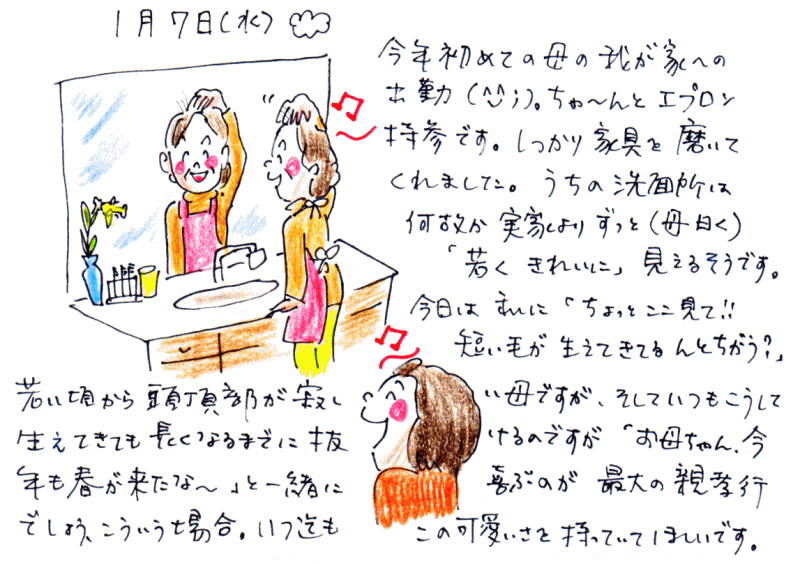 1月7日(水)
今年初めての母の我が家への
出勤(^^;)。ちゃ〜んとエプロン
持参です。しっかり家具を磨いて
くれました。うちの洗面所は
何故か実家よりずっと(母曰く)
「若くきれいに」見えるそうです。
今日は私に「ちょっとここ見て!!
短い毛が生えてきてるんとちがう?」
若い頃から頭頂部が寂しい母ですが、そしていつもこうして
生えてきても長くなるまでに抜けるのですが「お母ちゃん、今
年も春が来たな〜」と一緒に喜ぶのが最大の親孝行
でしょう、こういう場合。いつ迄もこの可愛いさを持っていてほしいです。